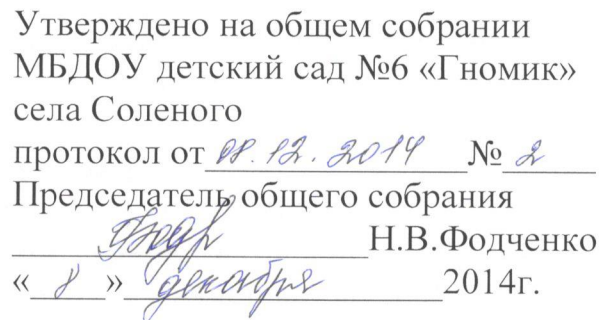 Утверждено на общем собрании
МБДОУ детский сад №6 «Гномик»
села Соленого
протокол от 08.12.2014 № 2
Председатель общего собрания
Н.В.Фодченко
« 8 » декабря 2014г.